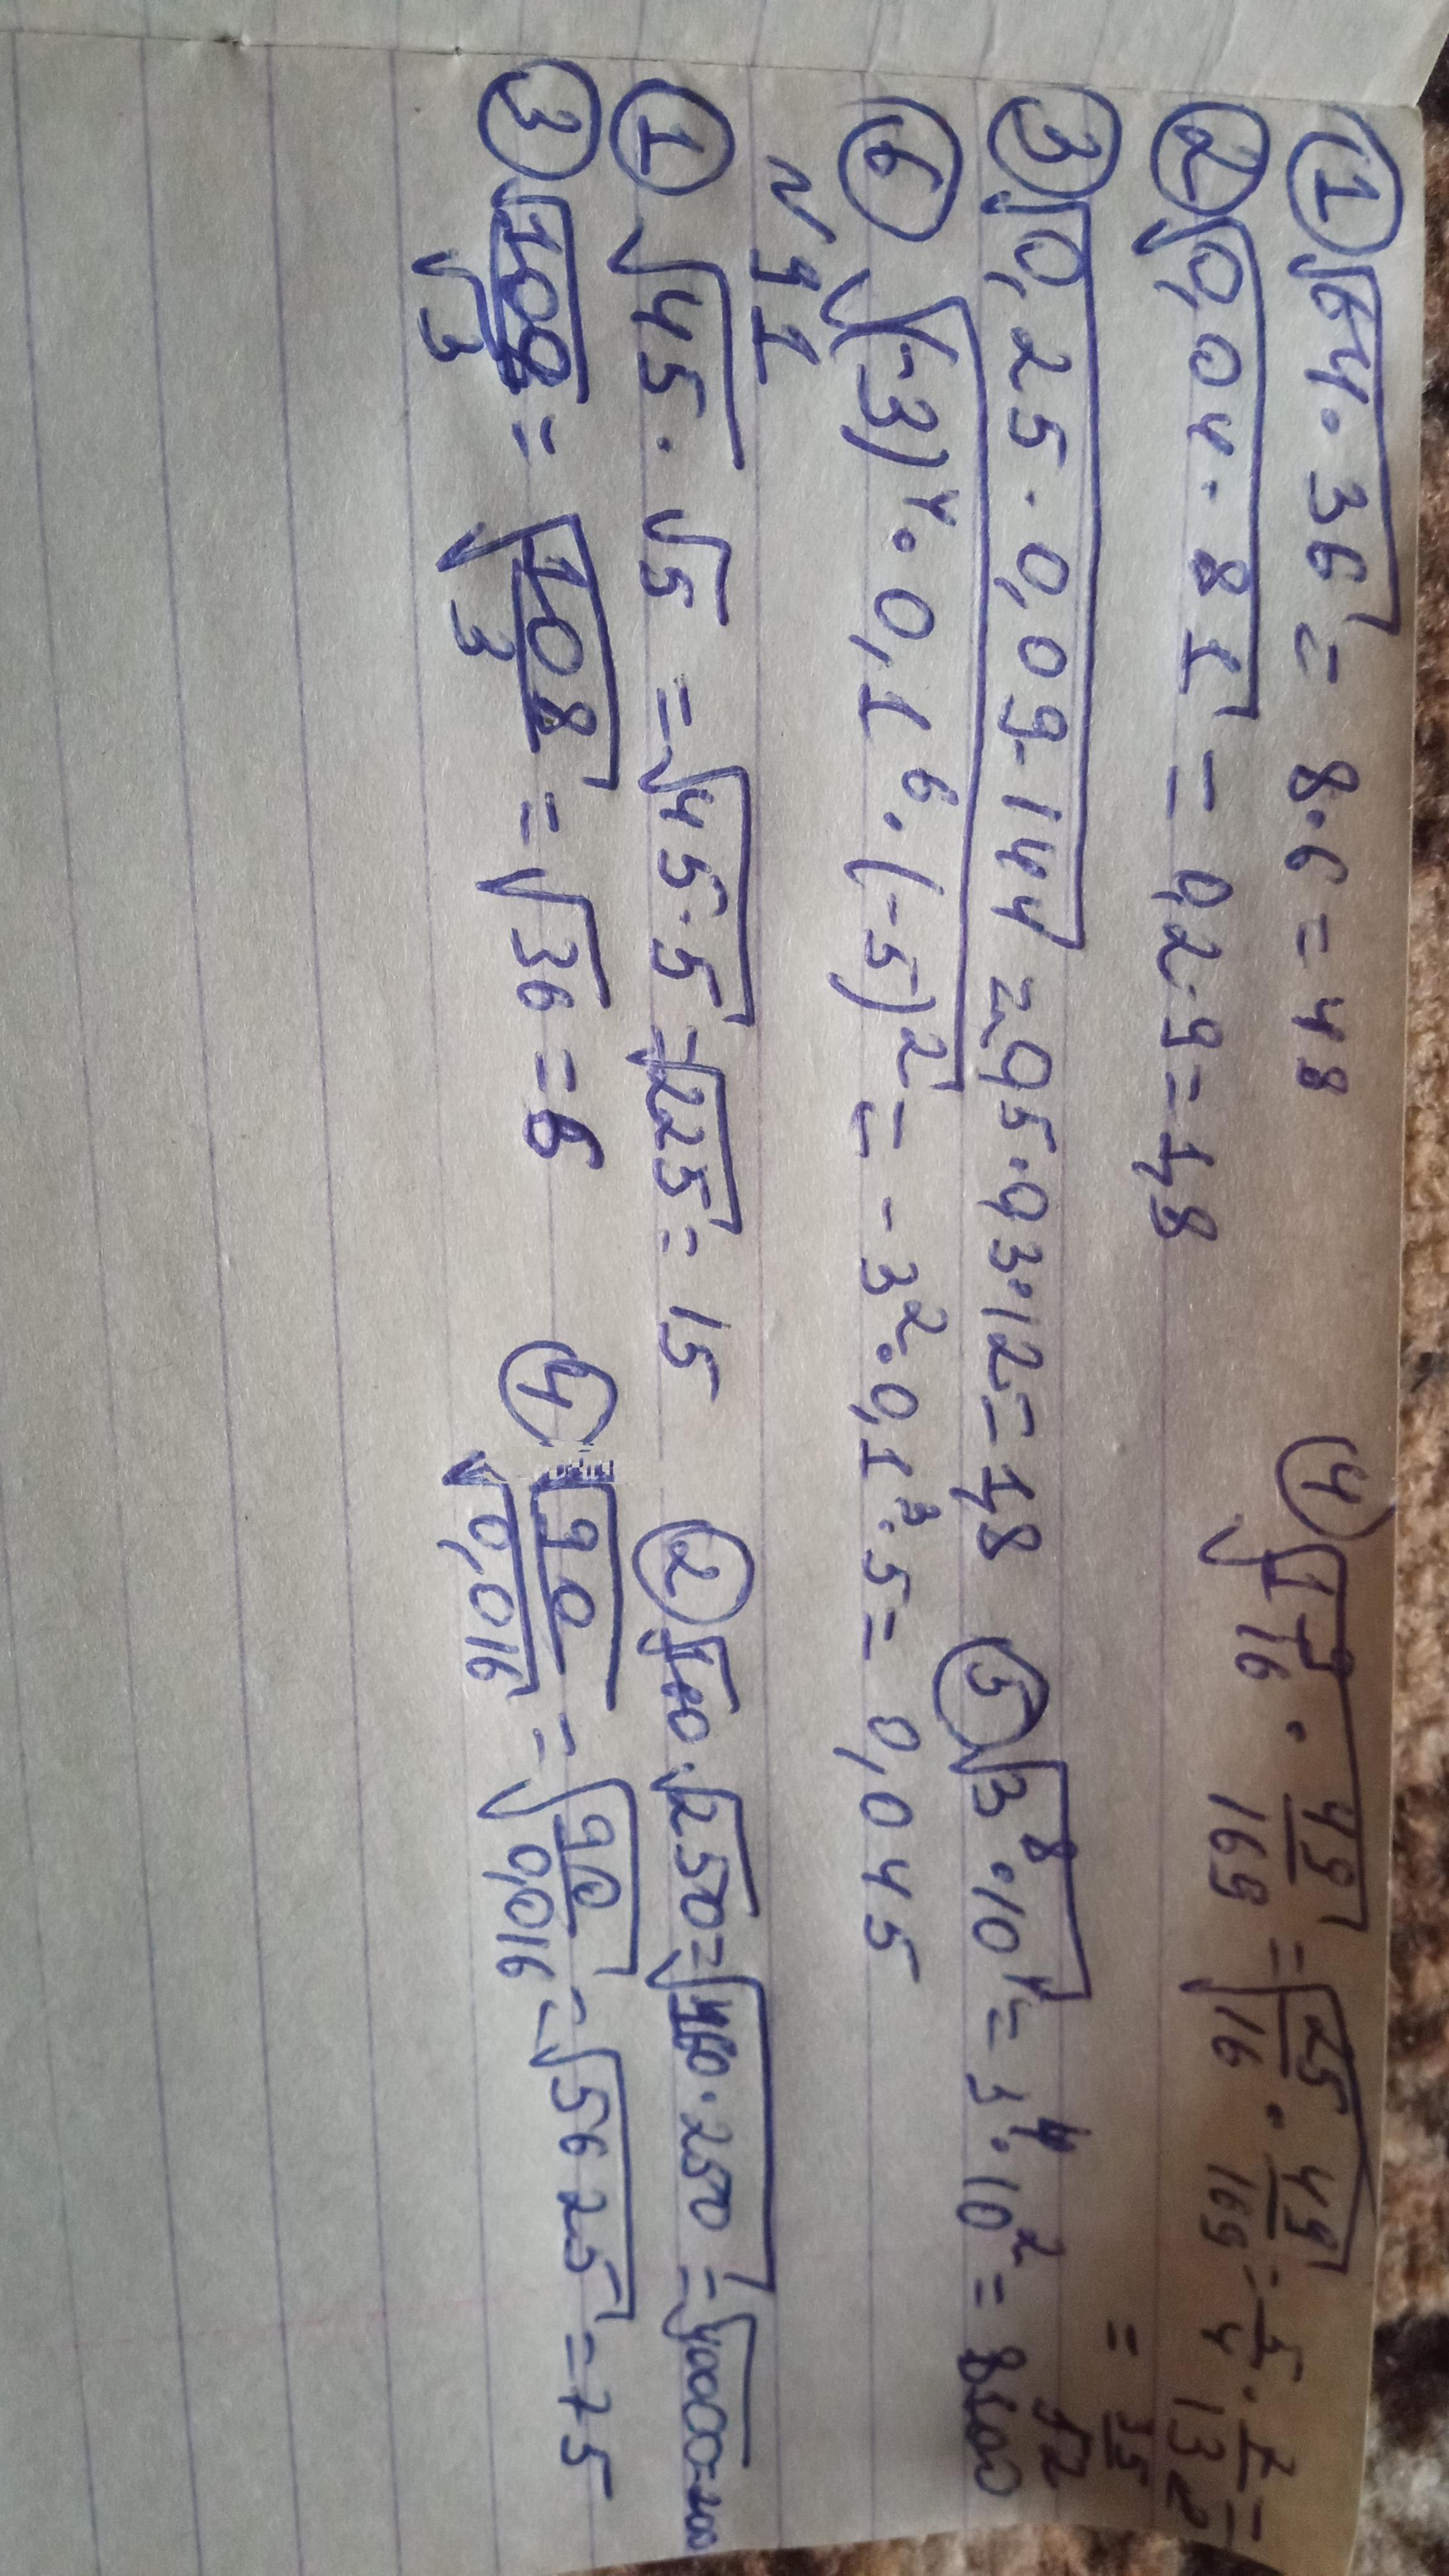 ① √64·36 = 8·6 = 48 ④ √1 9/16 · 49/169 = √25/16 · 49/169 = 5/4 · 7/13 =
② √0,04·81 = 0,2·9 = 1,8 = 35/52
③ √0,25·0,09·144 = 0,5·0,3·12 = 1,8 ⑤ √3⁸·10⁴ = 3⁴·10² = 8100
⑥ √(-3)⁴·0,1⁶·(-5)² = -3²·0,1³·5 = 0,045
N 91
① √45 · √5 = √45·5 = √225 = 15 ② √160·√250 = √160·250 = √40000 = 200
③ √108/√3 = √108/3 = √36 = 6 ④ √90/√0,016 = √90/0,016 = √5625 = 75